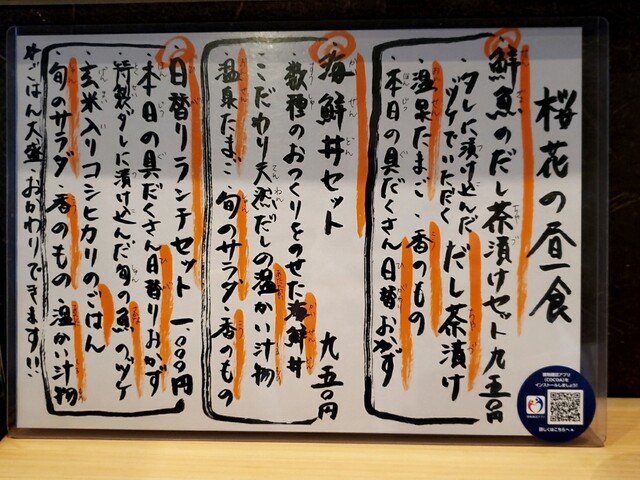 桜花の昼食
鮮魚のだし茶漬けセット 九五〇円
・タレに漬け込んだ
ヅケでいただく
だし茶漬け
・温泉たまご・香のもの
・本日の具だくさん日替おかず
海鮮丼セット 九五〇円
・数種のおつくりをのせた海鮮丼
・こだわり天然だしの温かい汁物
・温泉たまご・旬のサラダ・香のもの
日替りランチセット 一、〇〇〇円
・本日の具だくさん日替りおかず
・特製ダレに漬け込んだ旬の魚のヅケ
・玄米入りコシヒカリのごはん
・旬のサラダ・香のもの・温かい汁物
※ごはん大盛・おかわりできます!!
接触確認アプリ
(COCOA)を
インストールしましょう!
詳しくはこちらへ